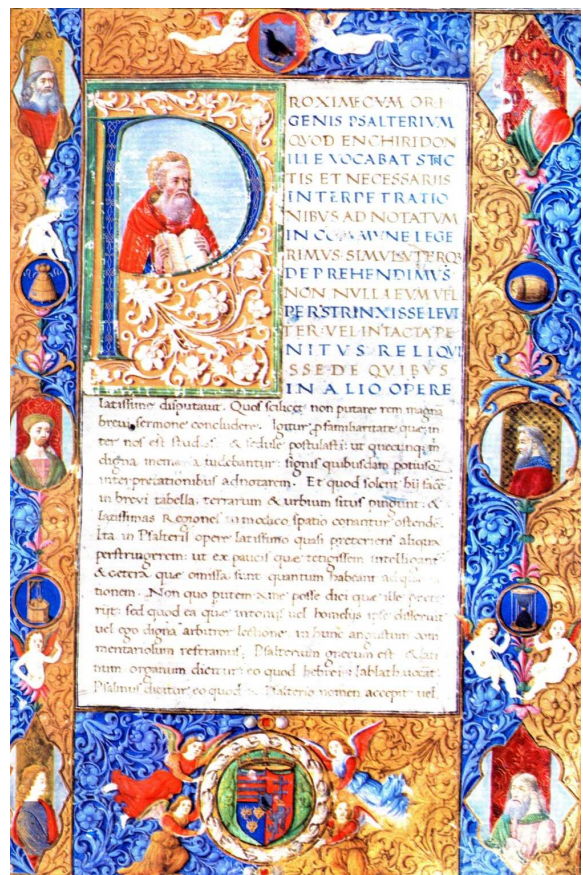 PROXIME CVM ORI
GENIS PSALTERIVM
QVOD ENCHIRIDON
ILLE VOCABAT STRIC
TIS ET NECESSARIIS
INTERPETRATIO
NIBVS AD NOTATVM
IN COMMVNE LEGE
RIMVS SIMVL VTERQ
DEPREHENDIMVS
NON NVLLA EVM VEL
PERSTRINXISSE LEVI
TER VEL INTACTA PE
NITVS RELIQVI
SSE DE QVIBVS
IN ALIO OPERE
latissime disputavit. Quos scilicet non putare rem magna
brevi sermone concludere. Igitur familiaritate que in
ter nos est studiose & sedule postulasti: ut quecunq; in
digna memoria videbantur signis quibusdam potius q
interpretationibus adnotarem. Et quod solent hii face
in brevi tabella terrarum & urbium situs pingunt: &
latissimas Regiones in modico spatio conantur ostende
Ita in Psalterii opere latissimo quasi preteriens aliqua
perstringerem: ut ex paucis que tetigissem intelligant
& cetera que omissa sunt quantum habeant ad
tionem. Non quo putem a me posse dici que ille prete
riit: sed quod ea que in tomis vel homeliis ipse disseruit
vel ego digna arbitror lectione in hunc angustum com
mentariolum referamus. Psalterium grecum est & lati
num organum dicitur eo quod hebrei vocat.
Psalmus dicitur eo quod a Psalterio nomen accepit vel